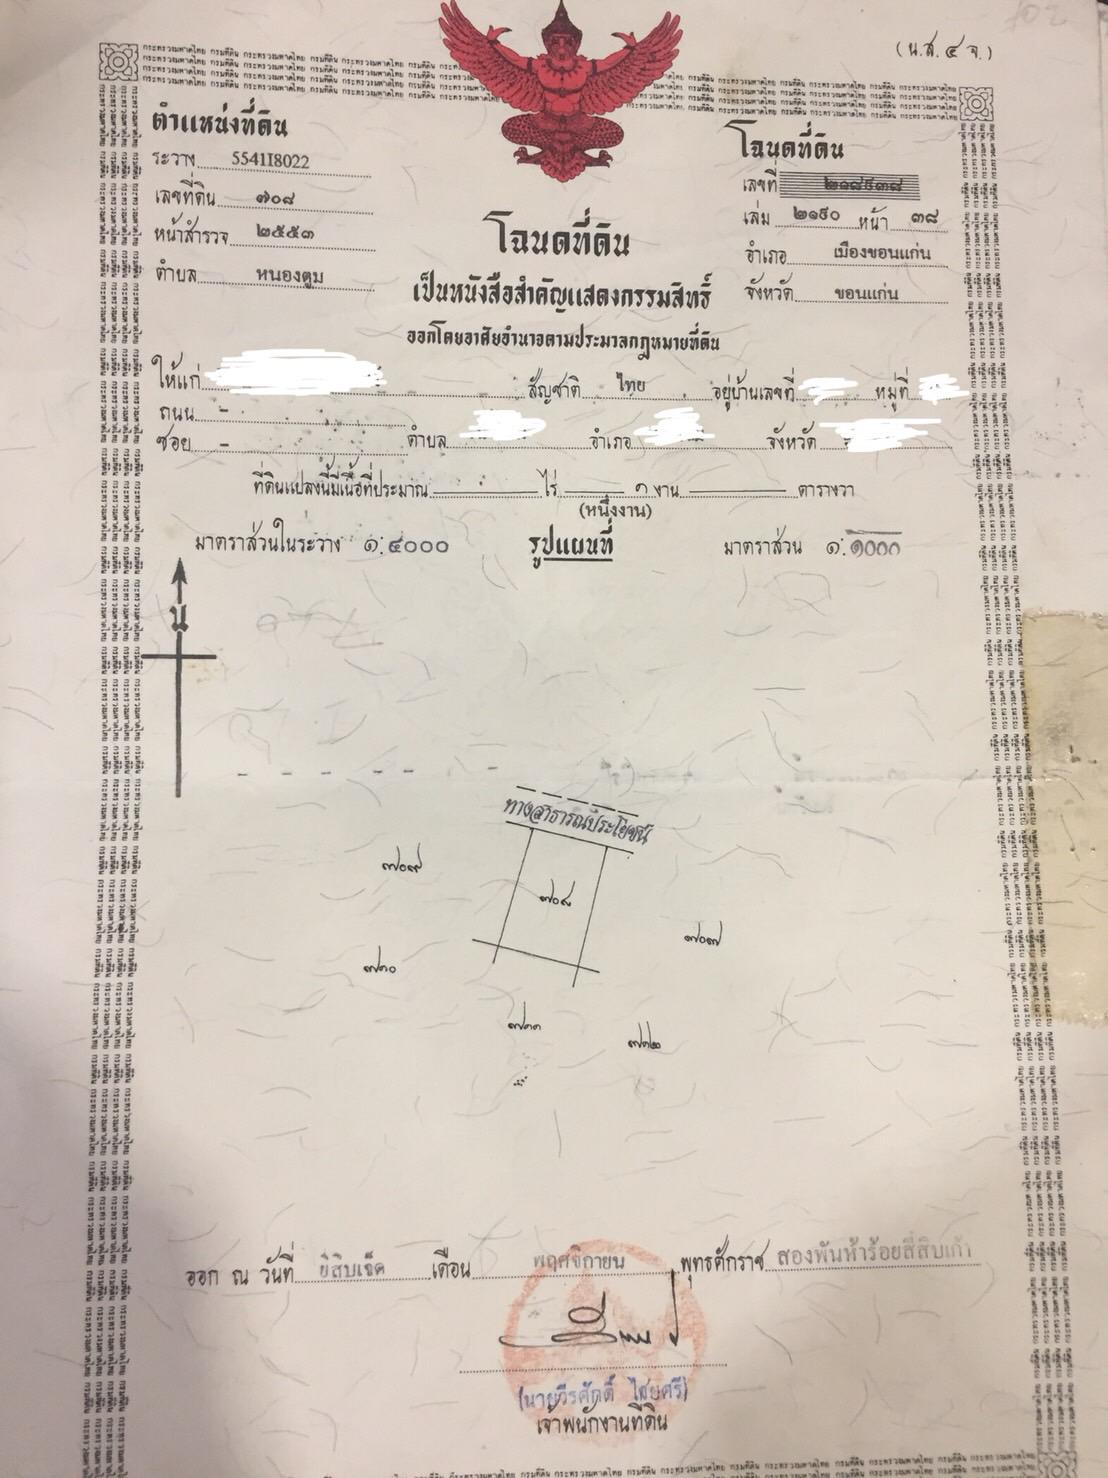 (น.ส.๔ จ.)
ตำแหน่งที่ดิน
ระวาง 5541I8022
เลขที่ดิน ๗๐๘
หน้าสำรวจ ๒๕๕๓
ตำบล หนองตูม
โฉนดที่ดิน
เลขที่ ๒๑๘๙๓๘
เล่ม ๒๑๙๐ หน้า ๓๘
อำเภอ เมืองขอนแก่น
จังหวัด ขอนแก่น
โฉนดที่ดิน
เป็นหนังสือสำคัญแสดงกรรมสิทธิ์
ออกโดยอาศัยอำนาจตามประมวลกฎหมายที่ดิน
ให้แก่ สัญชาติ ไทย อยู่บ้านเลขที่ หมู่ที่
ถนน -
ซอย - ตำบล อำเภอ จังหวัด
ที่ดินแปลงนี้มีเนื้อที่ประมาณ ไร่ ๑ งาน ตารางวา
(หนึ่งงาน)
มาตราส่วนในระวาง ๑:๔๐๐๐ รูปแผนที่ มาตราส่วน ๑:๑๐๐๐
น
ทางสาธารณประโยชน์
๗๐๙
๗๐๘
๗๐๗
๗๑๐
๗๑๑
๗๑๒
ออก ณ วันที่ ยี่สิบเจ็ด เดือน พฤศจิกายน พุทธศักราช สองพันห้าร้อยสี่สิบเก้า
(นายวีรศักดิ์ ไสยศรี)
เจ้าพนักงานที่ดิน